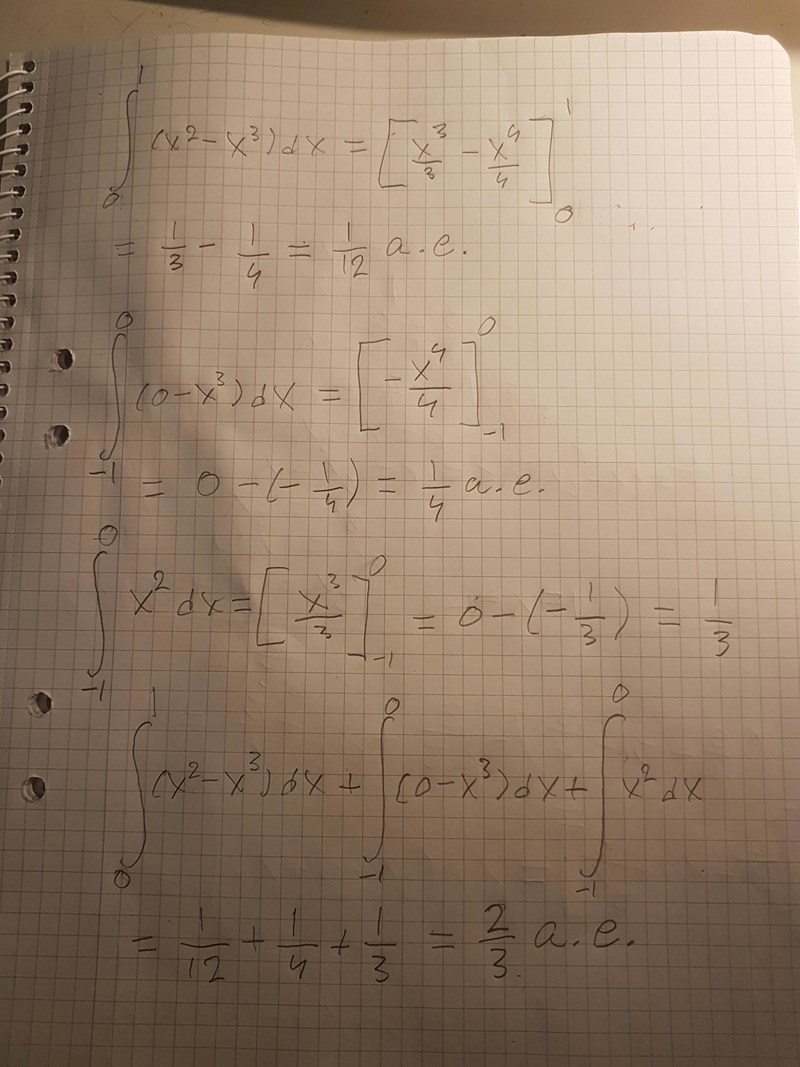 ∫₀¹ (x² − x³) dx = [x³/3 − x⁴/4]₀¹
= 1/3 − 1/4 = 1/12 a.e.
∫₋₁⁰ (0 − x³) dx = [− x⁴/4]₋₁⁰
= 0 − (− 1/4) = 1/4 a.e.
∫₋₁⁰ x² dx = [x³/3]₋₁⁰ = 0 − (− 1/3) = 1/3
∫₀¹ (x² − x³) dx + ∫₋₁⁰ (0 − x³) dx + ∫₋₁⁰ x² dx
= 1/12 + 1/4 + 1/3 = 2/3 a.e.